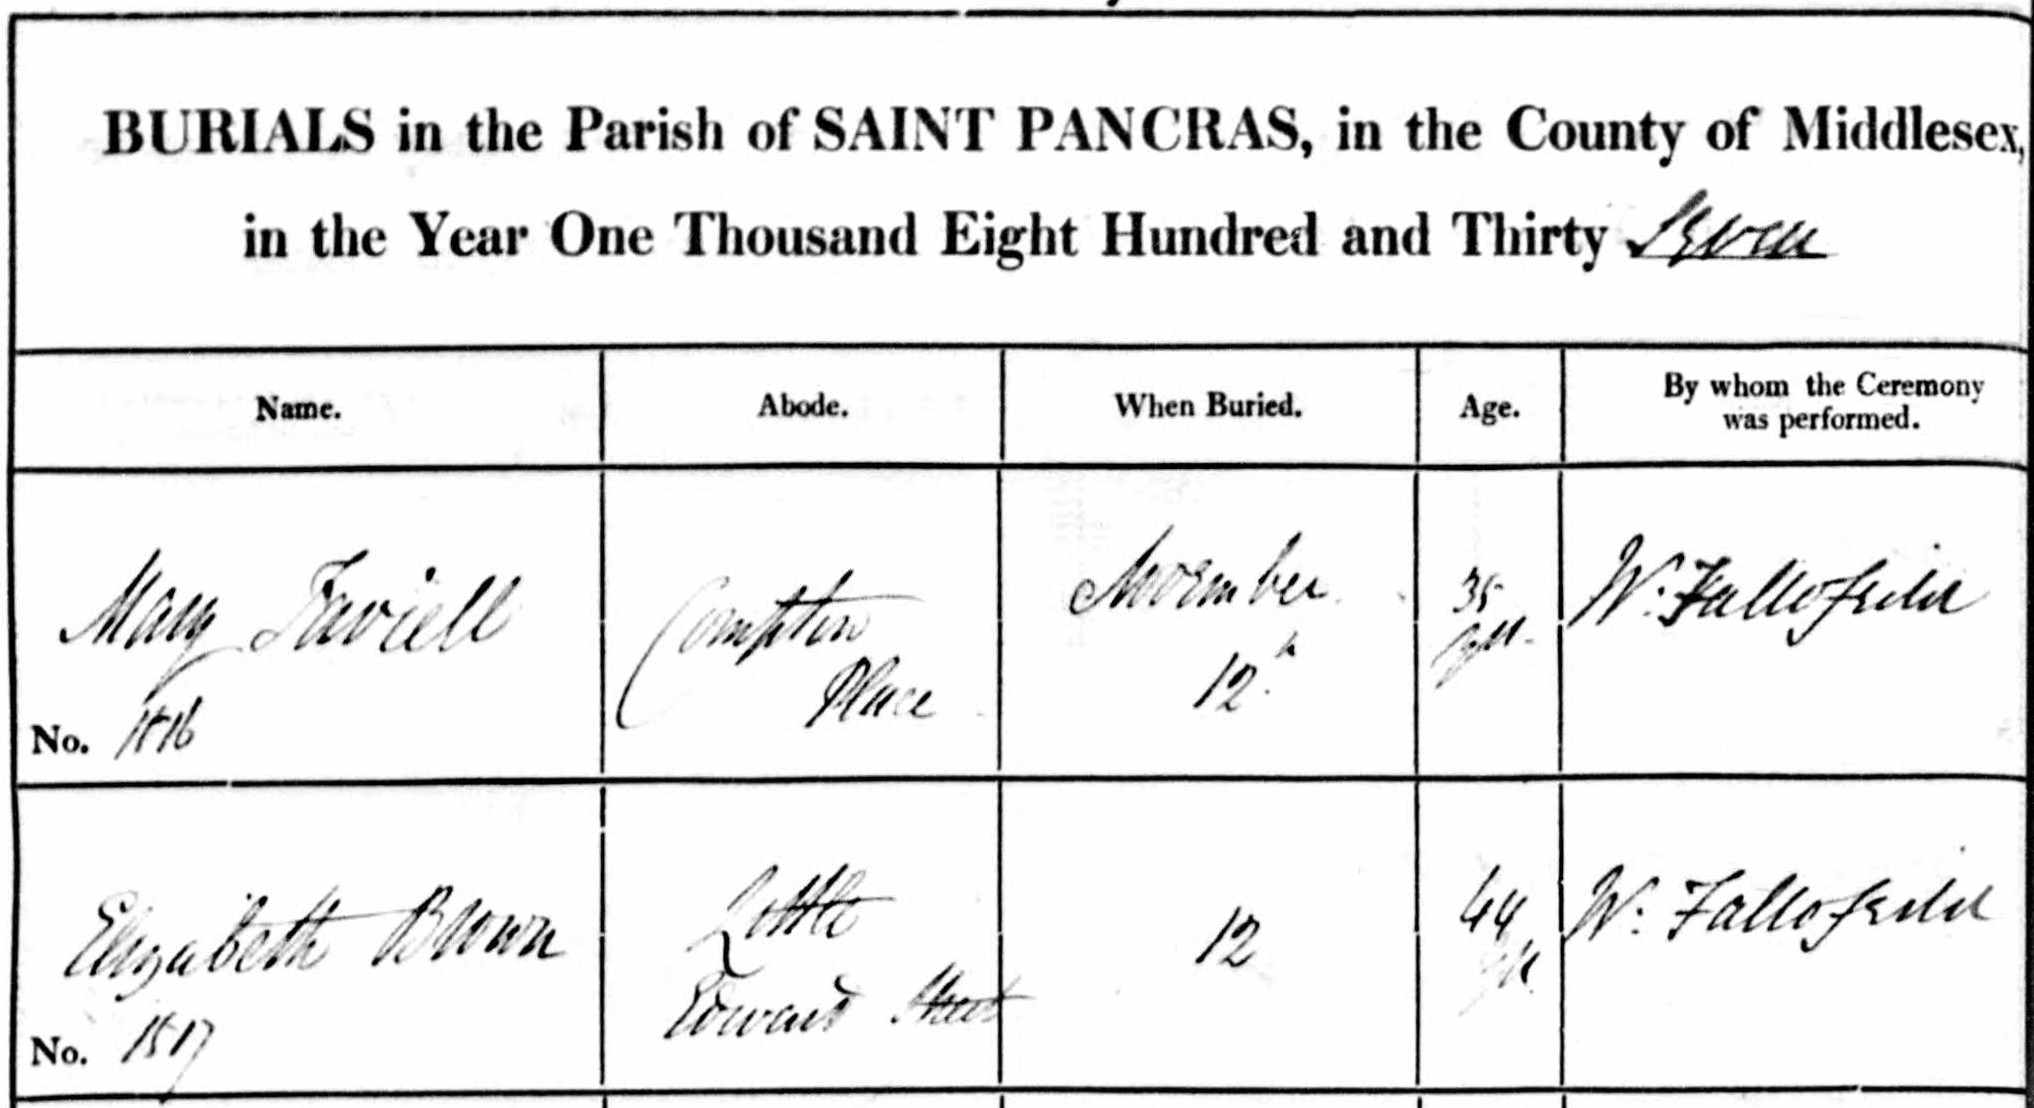 BURIALS in the Parish of SAINT PANCRAS, in the County of Middlesex,
in the Year One Thousand Eight Hundred and Thirty Seven
Name. Abode. When Buried. Age. By whom the Ceremony
was performed.
Mary Faviell Compton Place November 12th 35 yrs. W. Fallofeild
No. 1816
Elizabeth Brown Little Edward Street 12 44 yrs. W. Fallofeild
No. 1817